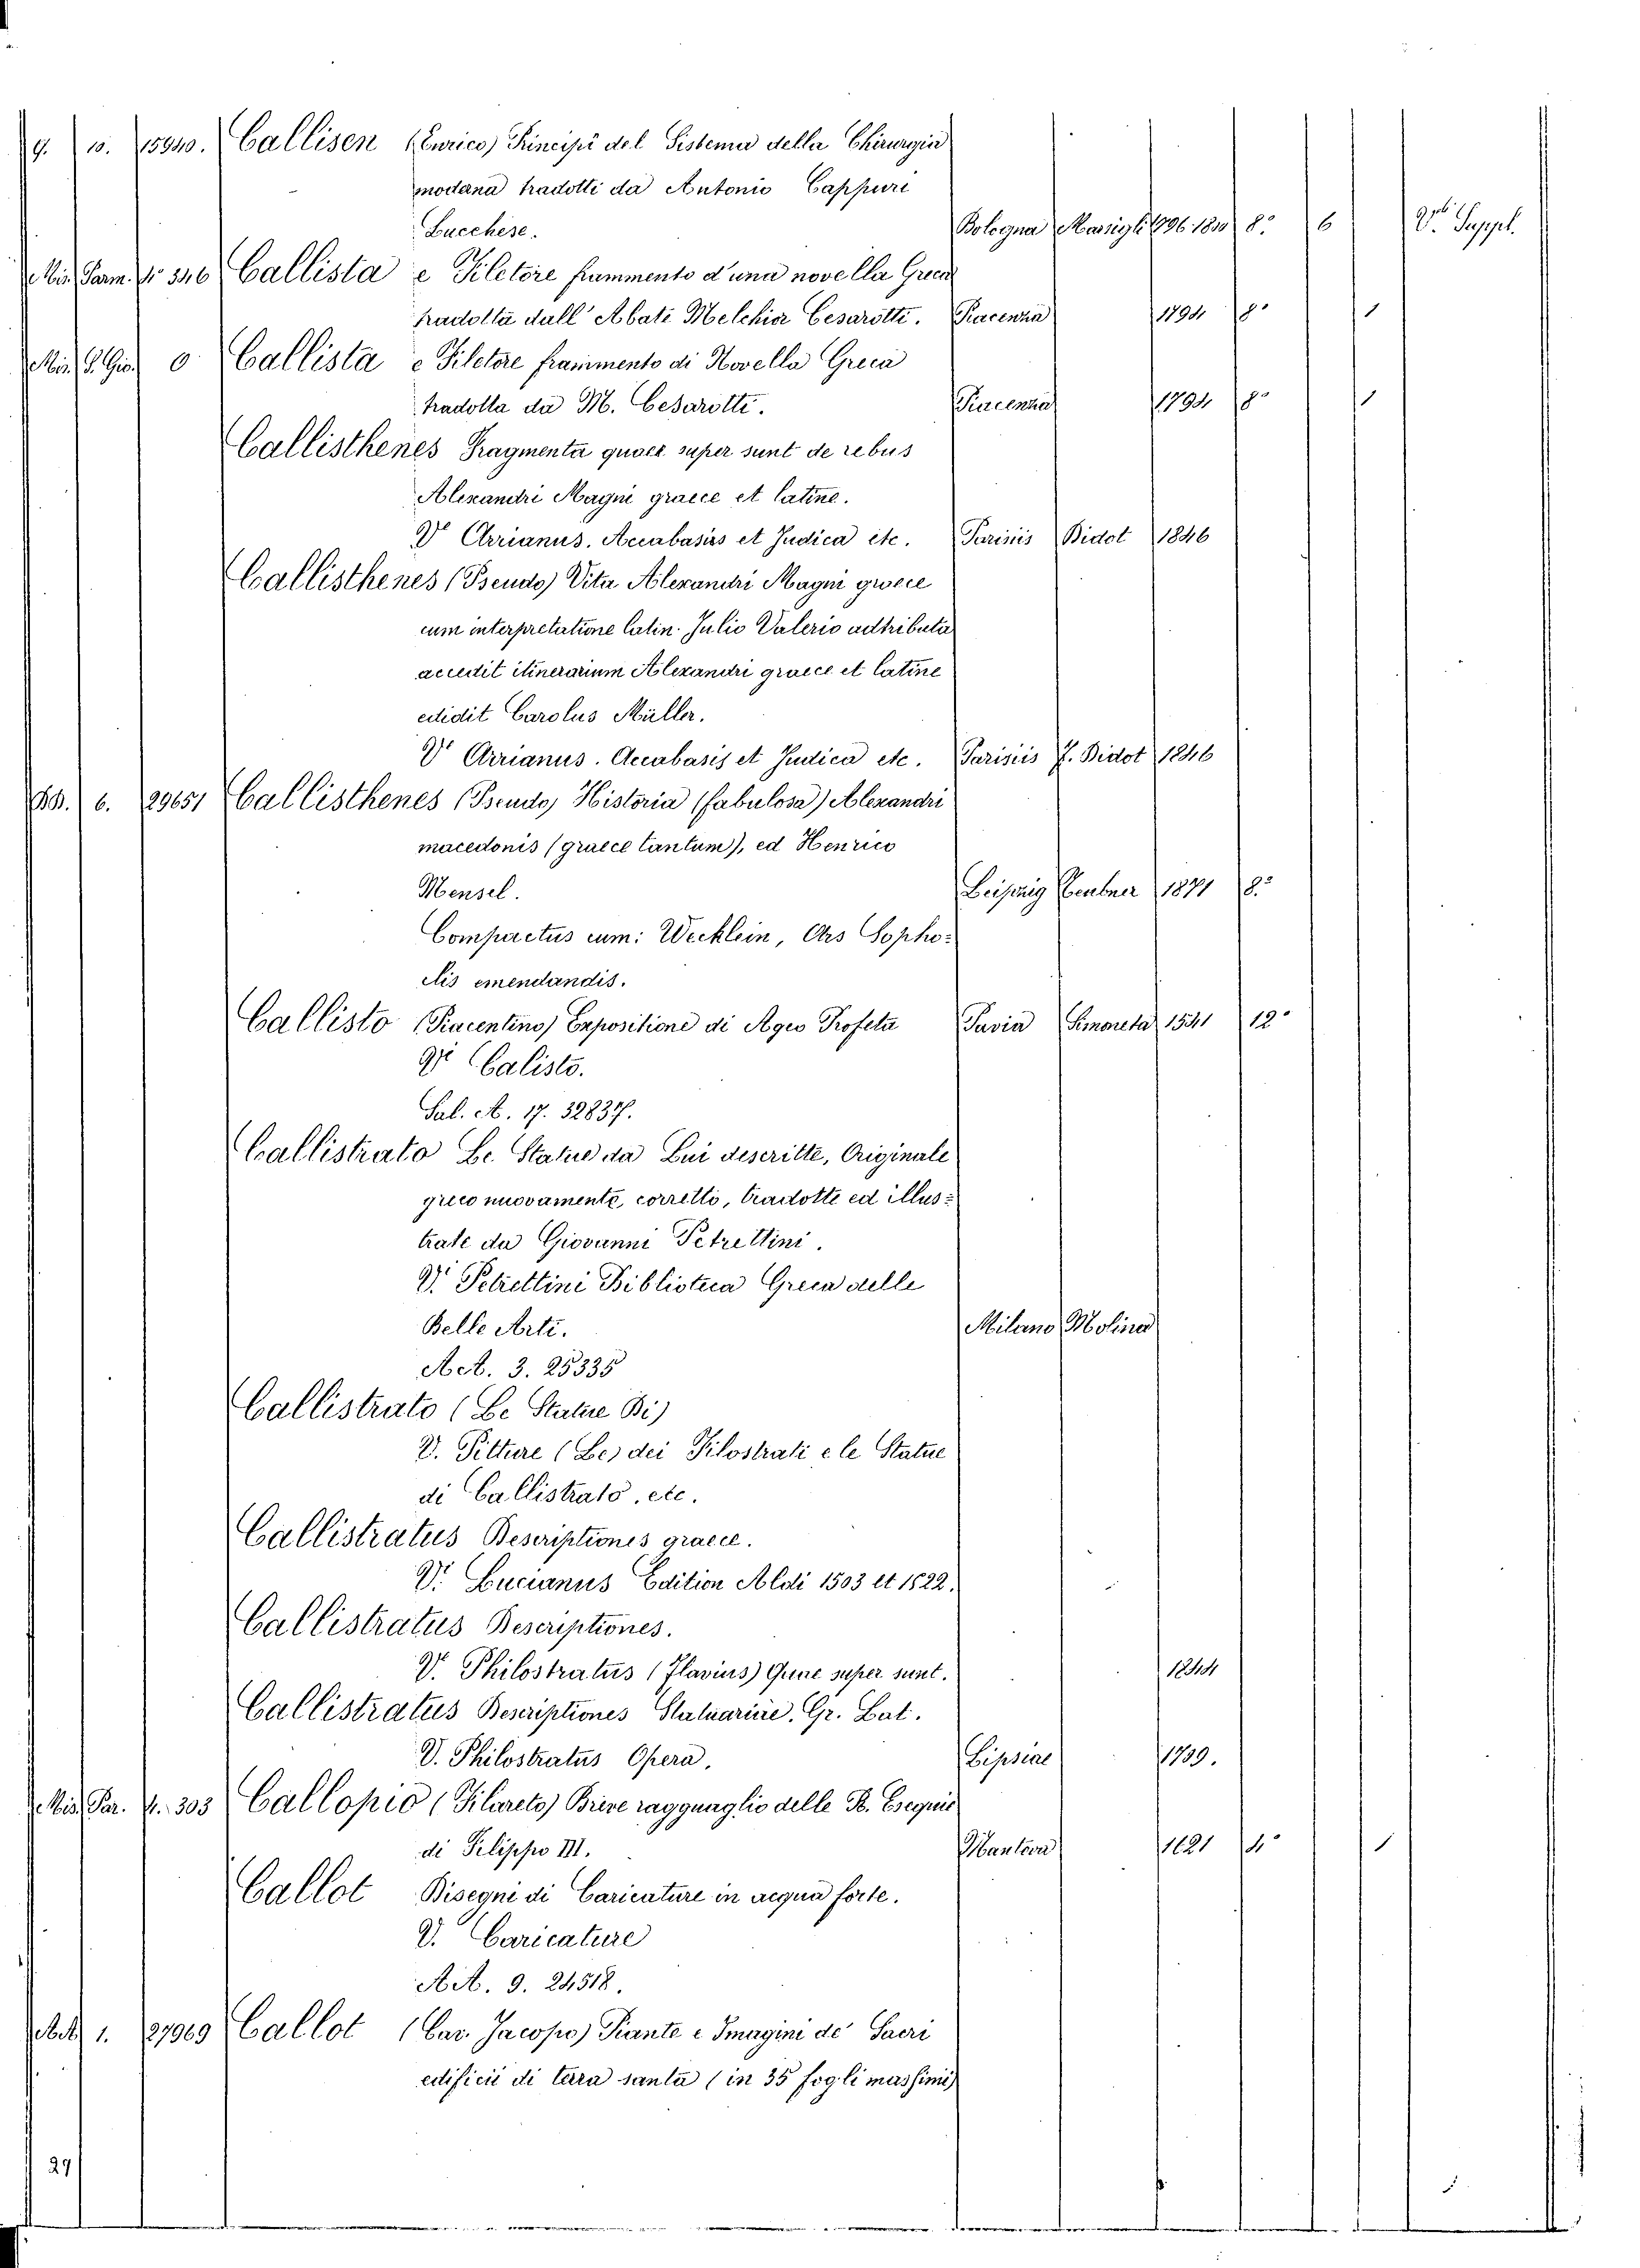 g. 10. 15940. Callisen (Enrico) Principi del Sistema della Chirurgia
modana tradotti da Antonio Cappuri
Lucchese. Bologna Marsigli 1796. 1800 8.o 6 Vedi Suppl.
Mis. Parm. 346 Callista e Filetore frammento d'una novella Greca
tradotta dall' Abate Melchior Cesarotti. Piacenza 1794 8.o 1
Mis. 0 Callista e Filetore frammento di Novella Greca
tradotta da M. Cesarotti. Piacenza 1794 8.o 1
Callisthenes Fragmenta quae super sunt de rebus
Alexandri Magni graece et latine.
Vi Arrianus. Anabasis et Indica etc. Parisiis Didot 1846
Callisthenes (Pseudo) Vita Alexandri Magni graece
cum interpretatione latin. Julio Valerio adtributa
accedit itinerarium Alexandri graece et latine
edidit Carolus Müller.
Vi Arrianus. Anabasis et Indica etc. Parisiis F. Didot 1846
6. 29651 Callisthenes (Pseudo) Historia (fabulosa) Alexandri
macedonis (graece tantum), ed Henrico
Mensel. Leipzig Teubner 1871 8.o
Compactus cum: Wecklein, Ars Sopho=
clis emendandis.
Callisto (Piacentino) Expositione di Ageo Profeta Pavia Simoneta 1541 12o
Vi Calisto.
Sal. A. 17. 32837.
Callistrato Le Statue da Lui descritte, Originale
greco nuovamente, corretto, tradotte ed illus=
trate da Giovanni Petrettini.
Vi Petrettini Biblioteca Greca delle
Belle Arti. Milano Molina
AeA. 3. 25335
Callistrato (Le Statue Di)
V. Pitture (Le) dei Filostrati e le Statue
di Callistrato, etc.
Callistratus Descriptiones graece.
Vi Lucianus Edition Aldi 1503 et 1522.
Callistratus Descriptiones.
Vi Philostratus (Flavius) Quae super sunt. 1844
Callistratus Descriptiones Statuariae. Gr. Lat.
V. Philostratus Opera. Lipsiae 1709.
Mis. Par. 4. 303 Callopio (Filareto) Brive ragguaglio delle R. Esequie
di Filippo III. Mantova 1621 4o 1
Callot Disegni di Caricature in acqua forte.
V. Caricature
AA. 9. 24518.
1. 27969 Callot (Cav. Jacopo) Piante e Imagini de' Sacri
edificii di terra santa (in 35 fogli massimi)
27